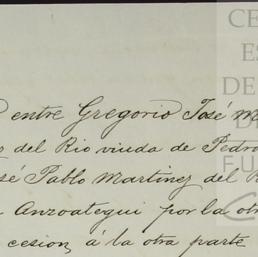 entre Gregorio José M
del Rio viuda de Pedro
sé Pablo Martinez del R
Anzoategui por la otra
cesion, á la otra parte
CE
ES
DE
DE
FU
C